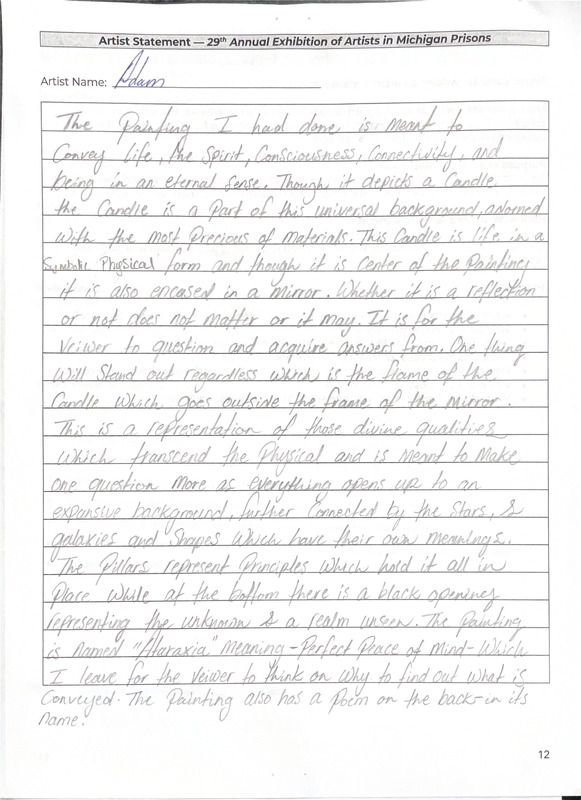 Artist Statement — 29th Annual Exhibition of Artists in Michigan Prisons
Artist Name: Adam
The Painting I had done is meant to
Convey life, the Spirit, Consciousness, Connectivity, and
being in an eternal sense. Though it depicts a Candle
the Candle is a Part of this universal background, adorned
with the most Precious of Materials. This Candle is life in a
Symbolic Physical form and though it is center of the Painting
it is also encased in a mirror. Whether it is a reflection
or not does not matter or it may. It is for the
Veiwer to question and acquire answers from. One thing
Will Stand out regardless which is the flame of the
Candle which goes outside the frame of the Mirror.
This is a representation of those divine qualities
Which transcend the Physical and is Meant to Make
one question More as everything opens up to an
expansive background, further Connected by the Stars, &
galaxies and Shapes Which have their own meanings.
The Pillars represent Principles which hold it all in
Place while at the bottom there is a black opening
representing the unknown & a realm unseen. The Painting
is Named "Ataraxia" Meaning-Perfect Peace of Mind-Which
I leave for the Veiwer to think on why to find out what is
Conveyed. The Painting also has a Poem on the back-in its
name.
12